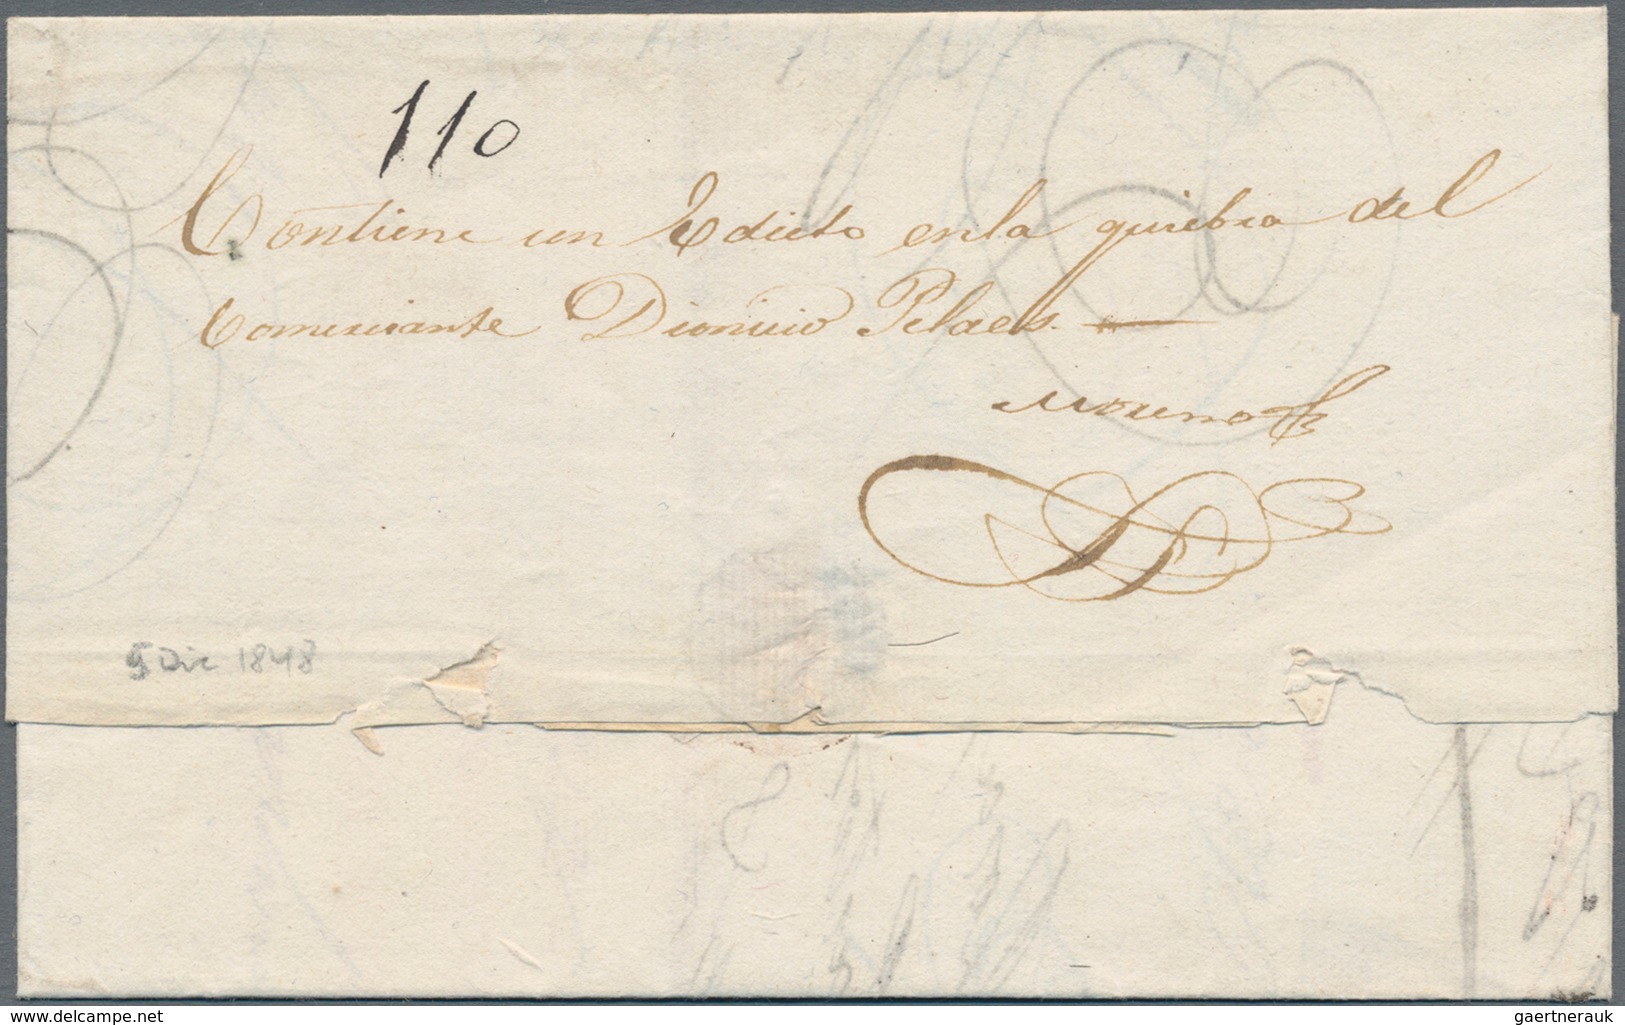 110
Contiene un Edicto en la quiebra del
Comerciante Dionicio Pelaes.
Moreno
5 Dic 1848
delcampe.net
gaertnerauk